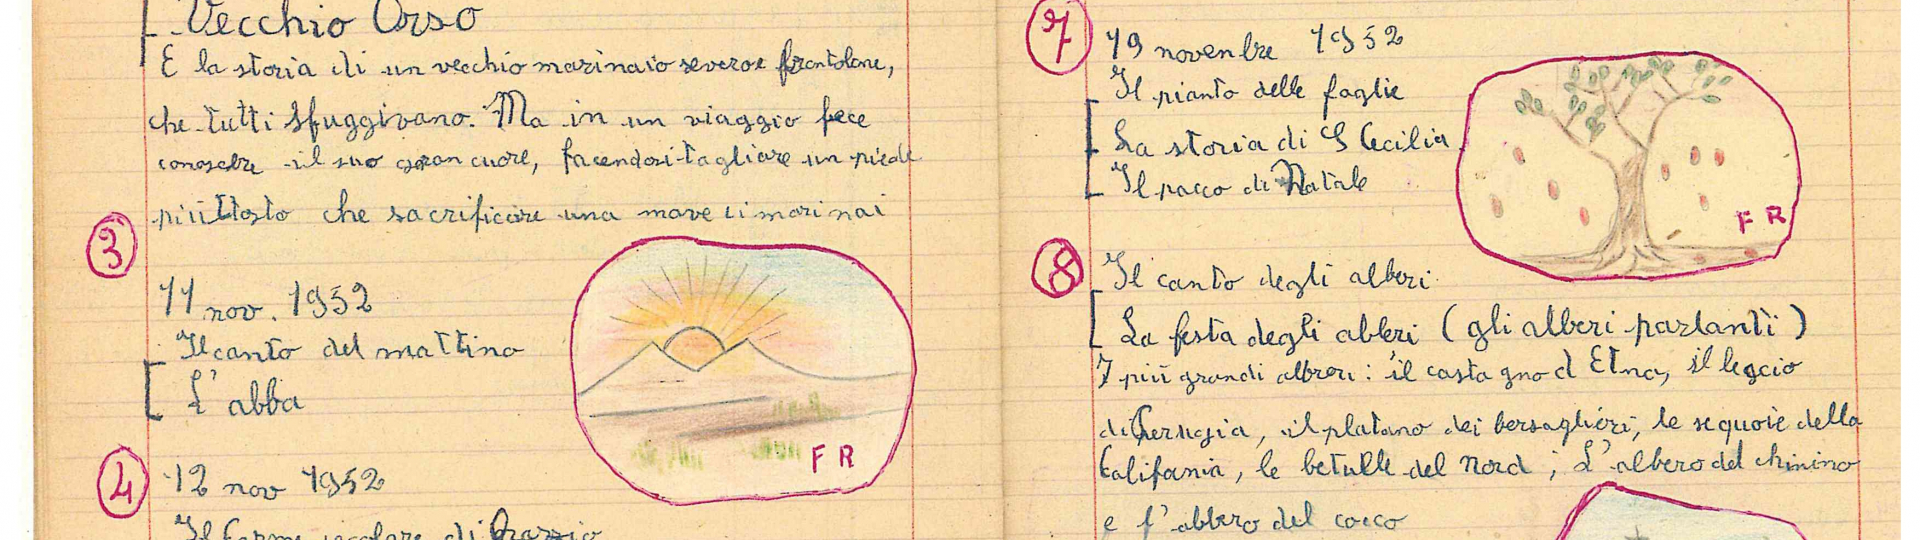 Vecchio Orso
E la storia di un vecchio marinaio severo e
che tutti sfuggivano. Ma in un viaggio fece
conoscere il suo gran cuore, facendosi tagliare un piede
piùttosto che sacrificare una nave di marinai
3
11 nov. 1952
Il canto del mattino
L'abba
4
12 nov 1952
Il Carme secolare di Orazio
F R
7
19 novenbre 1952
Il pianto delle foglie
La storia di S Cecilia
Il pacco di Natale
F R
8
Il canto degli alberi
La festa degli alberi (gli alberi parlanti)
I più grandi alberi: il castagno d Etna, il leccio
di Perugia, il platano dei bersaglieri, le sequoie della
California, le betulle del Nord; L'albero del chinino
e l'albero del cocco